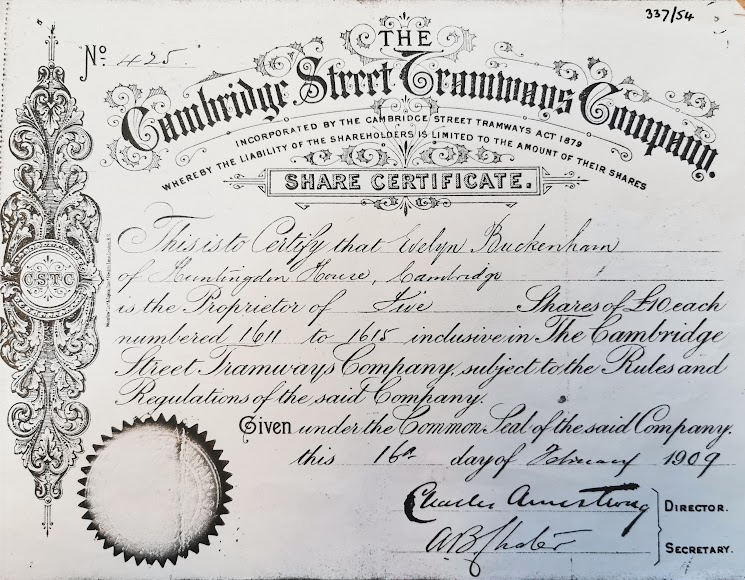 337/54
No 425
THE
Cambridge Street Tramways Company.
INCORPORATED BY THE CAMBRIDGE STREET TRAMWAYS ACT 1879
WHEREBY THE LIABILITY OF THE SHAREHOLDERS IS LIMITED TO THE AMOUNT OF THEIR SHARES
SHARE CERTIFICATE.
C.S.T.C
This is to Certify that Evelyn Buckenham
of Huntingdon House, Cambridge
is the Proprietor of Five Shares of £10 each
numbered 1611 to 1615 inclusive in The Cambridge
Street Tramways Company, subject to the Rules and
Regulations of the said Company.
Given under the Common Seal of the said Company.
this 16th day of February 1909
Charles Armstrong DIRECTOR.
SECRETARY.